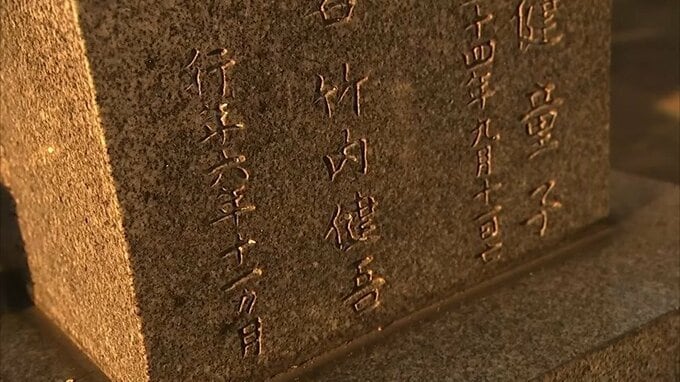 健童子
十四年九月十一日
竹内健吾
行年六年十一ヶ月